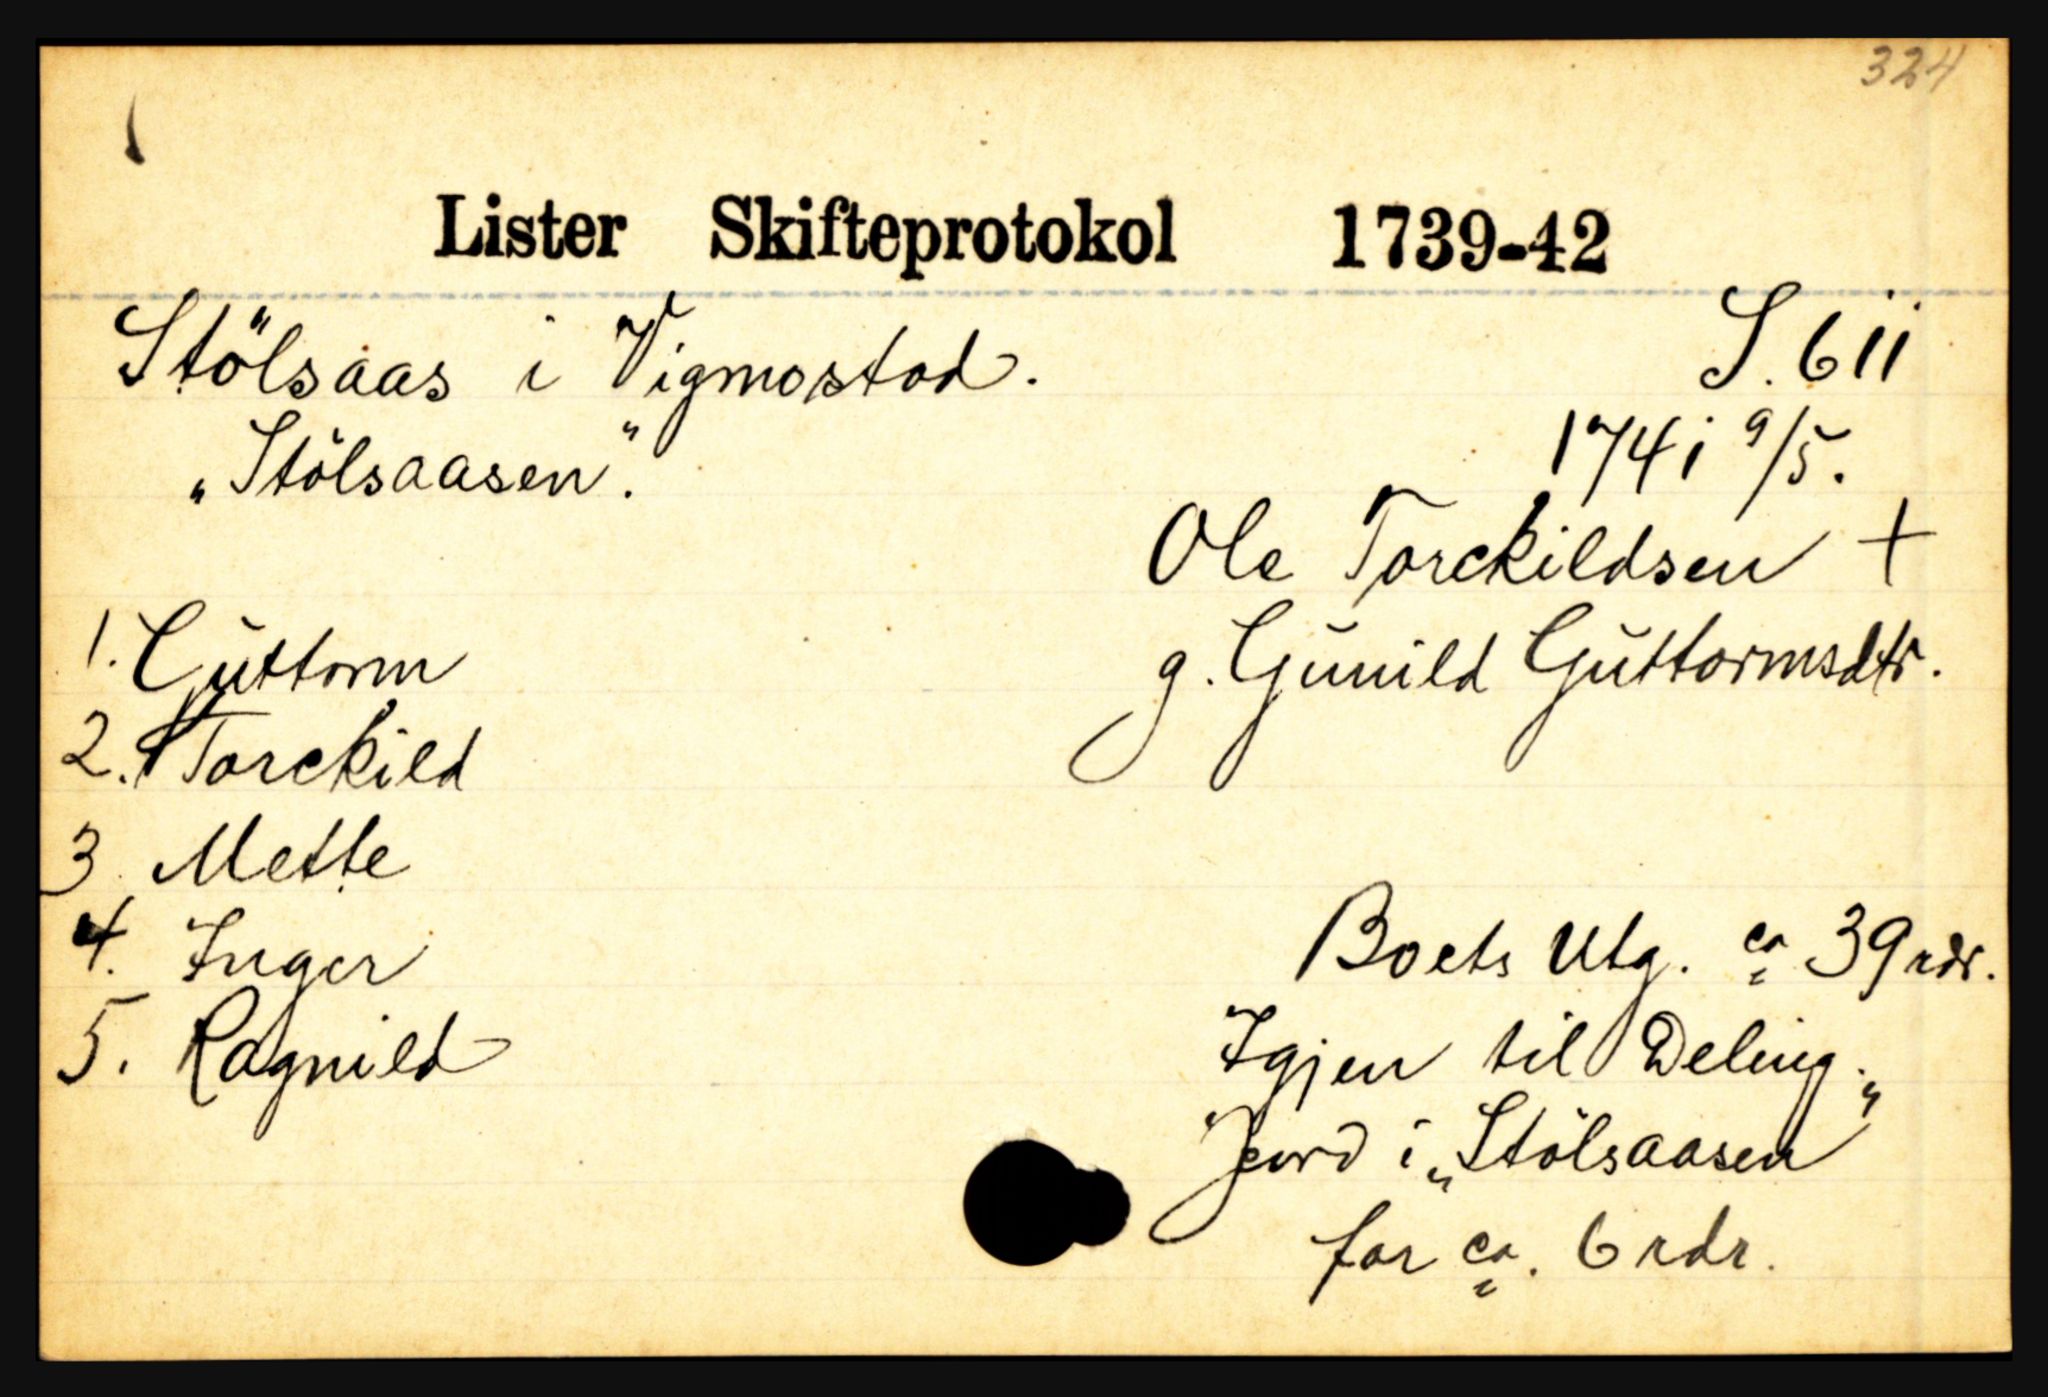 324
Lister Skifteprotokol 1739-42
Stölsaas i Vigmostad.
S. 611
"Stölsaasen".
1741 9/5.
Ole Torckildsen +
g. Gunild Guttormsdtr.
1. Guttorm
2. Torckild
3 Mette
4. Inger
5. Ragnild
Boets Utg. ca 39 rdr.
Igjen til Deling.
Jord i "Stölsaasen"
for ca. 6 rdr.